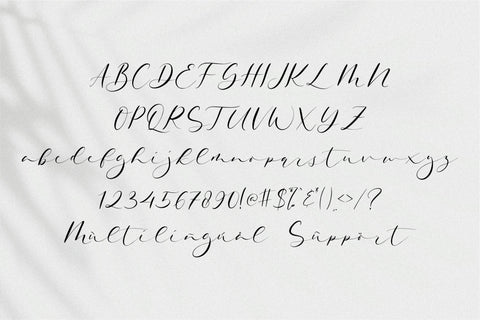 ABCDEFGHIJKLMN
OPQRSTUVWXYZ
abcdefghijklmnopqrstuvwxyz
1234567890!@#$%^&*(),<>/?
Multilingual Support